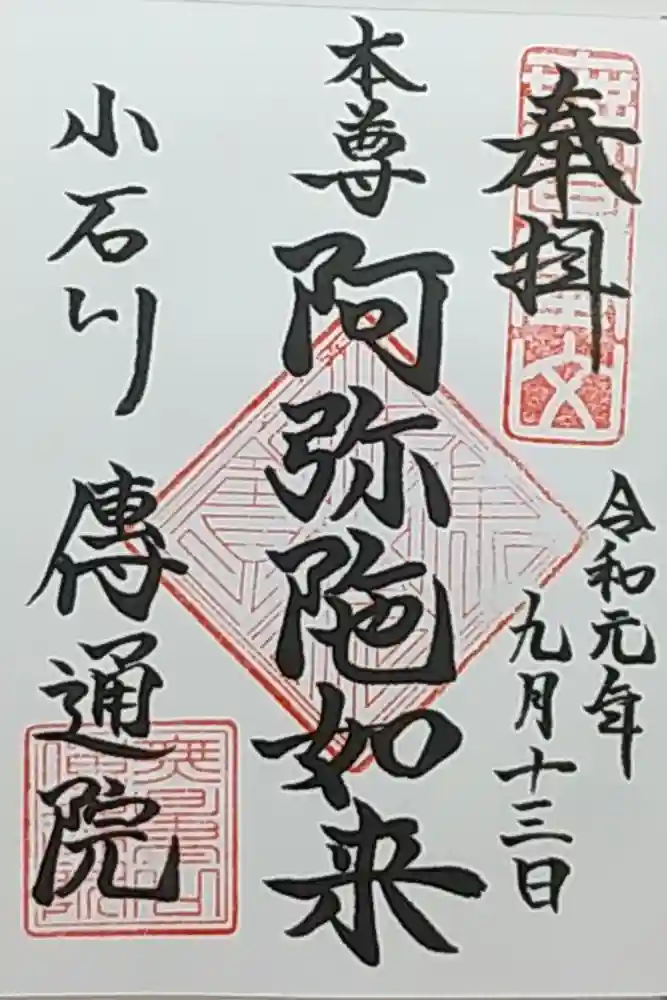 奉拝
令和元年
九月十三日
本尊
阿弥陀如来
小石川
傳通院